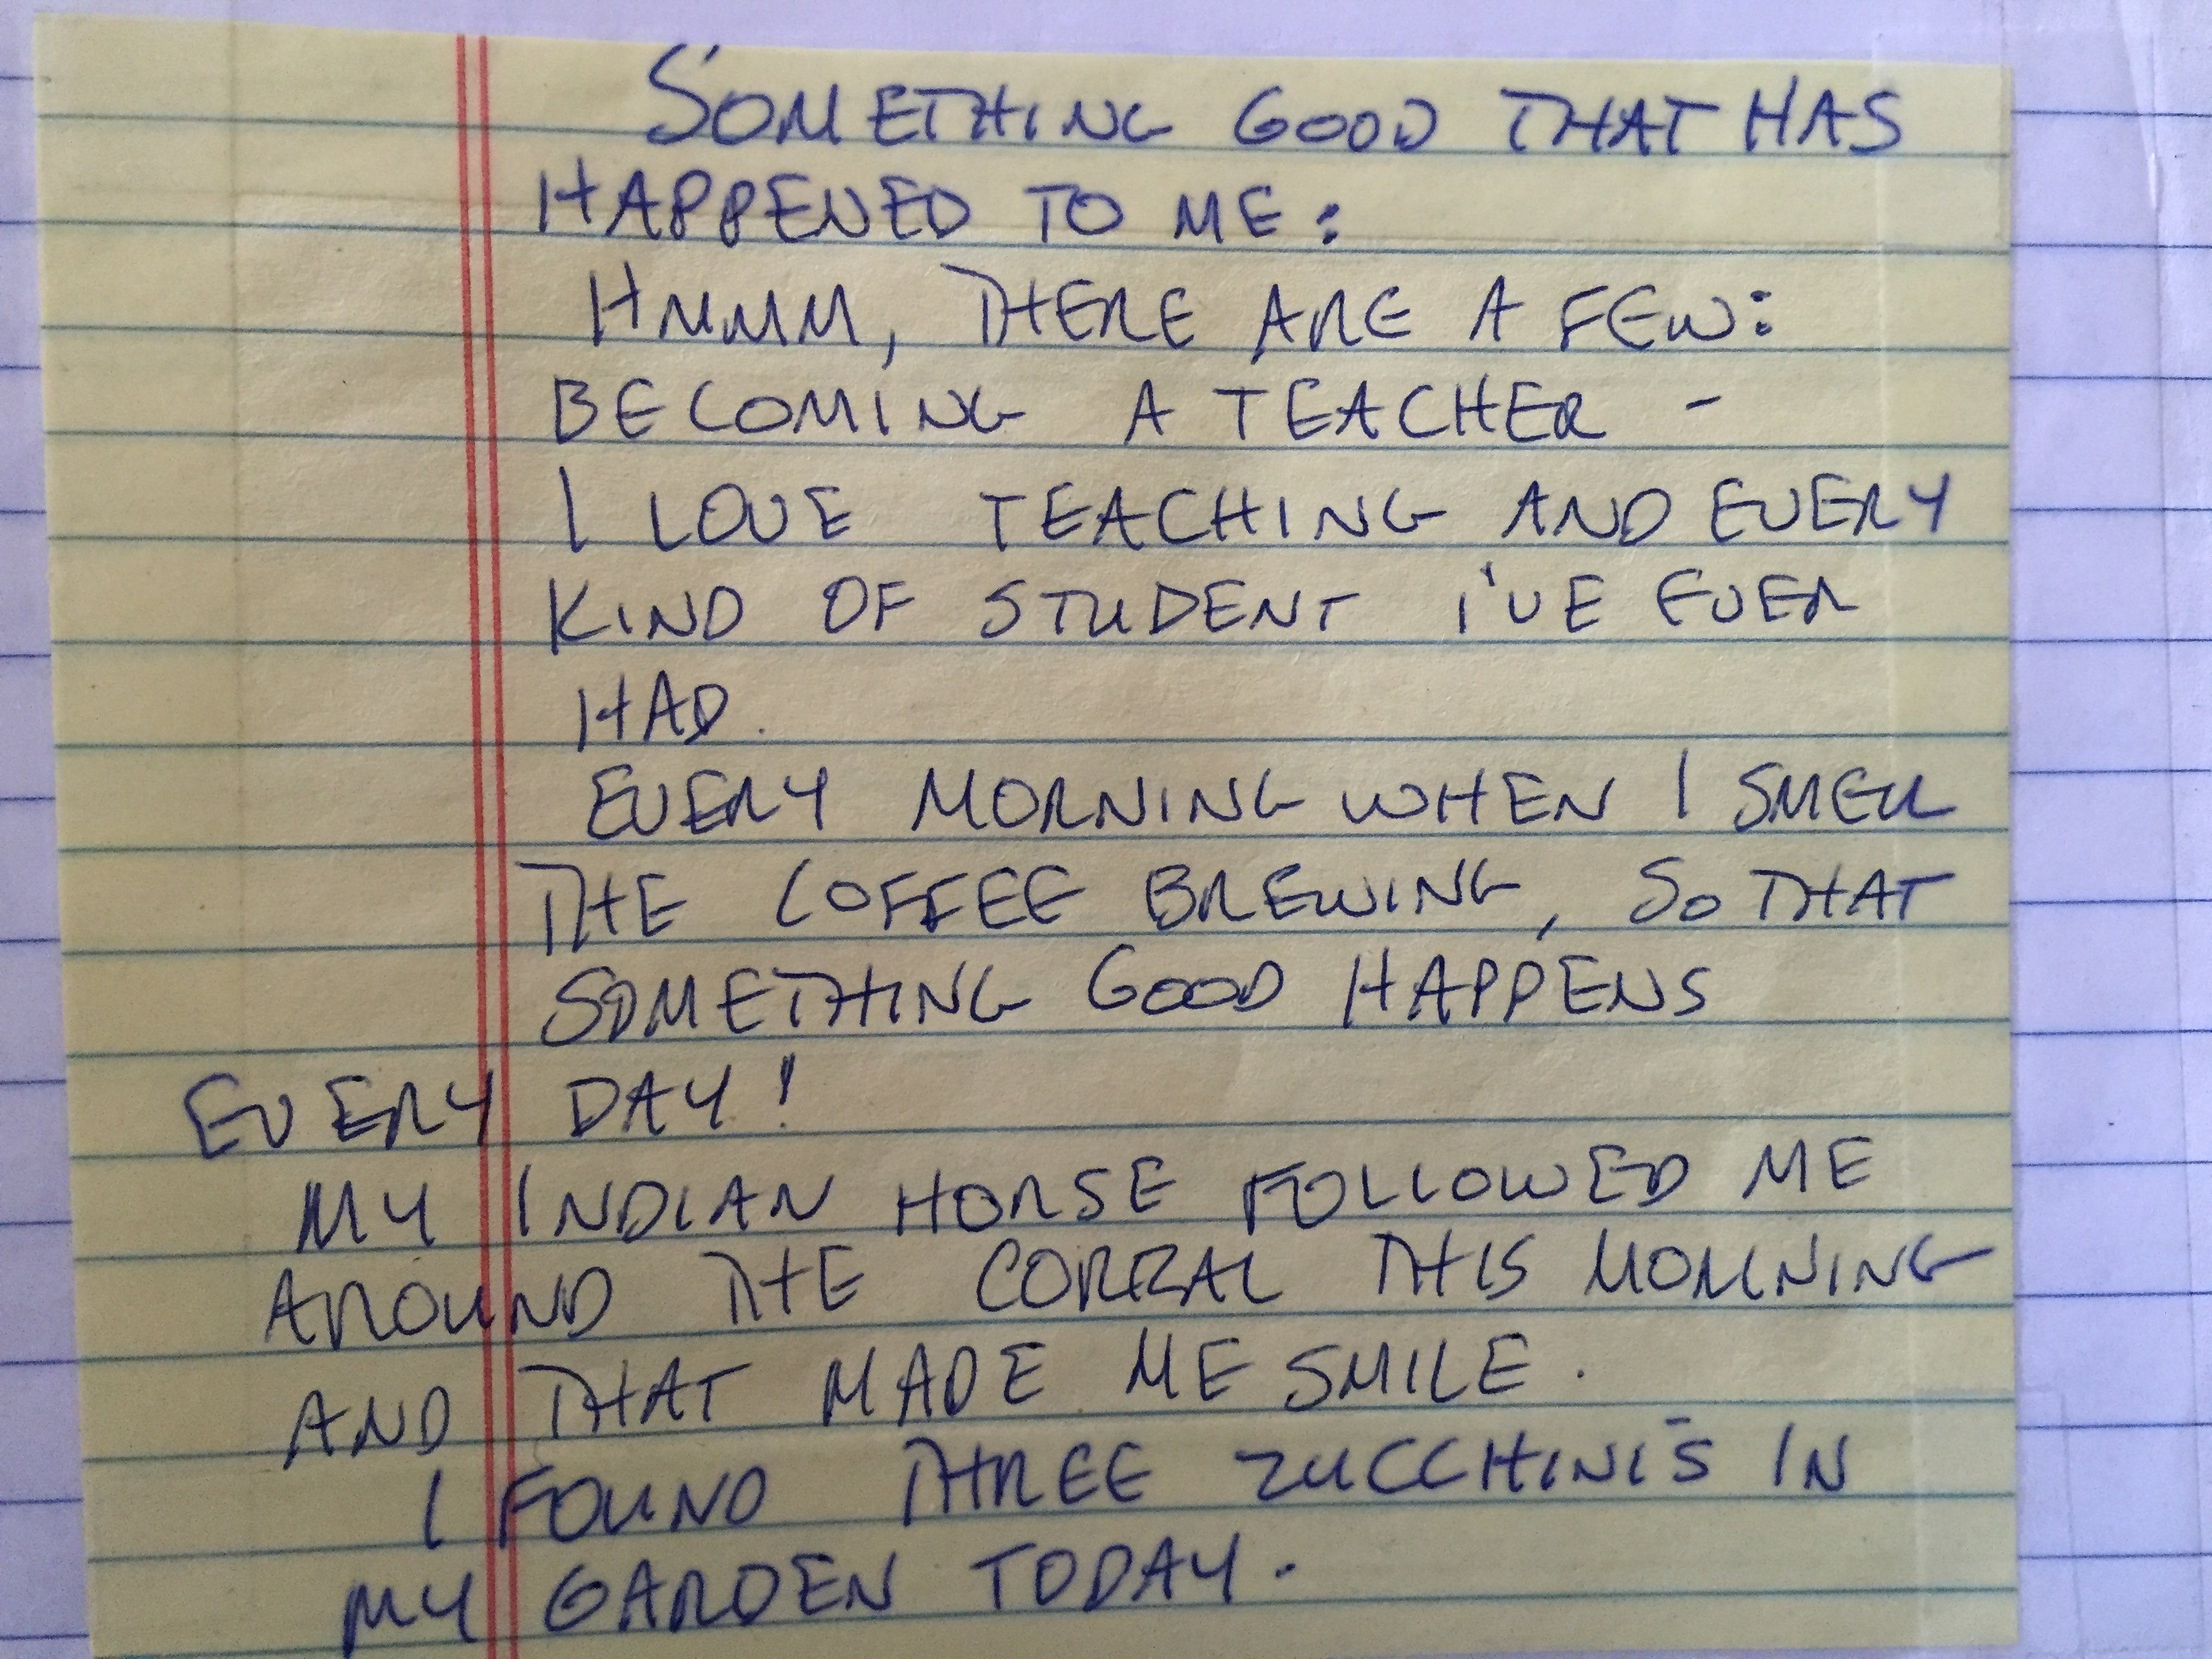 SOMETHING GOOD THAT HAS
HAPPENED TO ME:
HMMM, THERE ARE A FEW:
BECOMING A TEACHER -
I LOVE TEACHING AND EVERY
KIND OF STUDENT I'VE EVER
HAD.
EVERY MORNING WHEN I SMELL
THE COFFEE BREWING, SO THAT
SOMETHING GOOD HAPPENS
EVERY DAY!
MY INDIAN HORSE FOLLOWED ME
AROUND THE CORRAL THIS MORNING
AND THAT MADE ME SMILE.
I FOUND THREE ZUCCHINI'S IN
MY GARDEN TODAY.